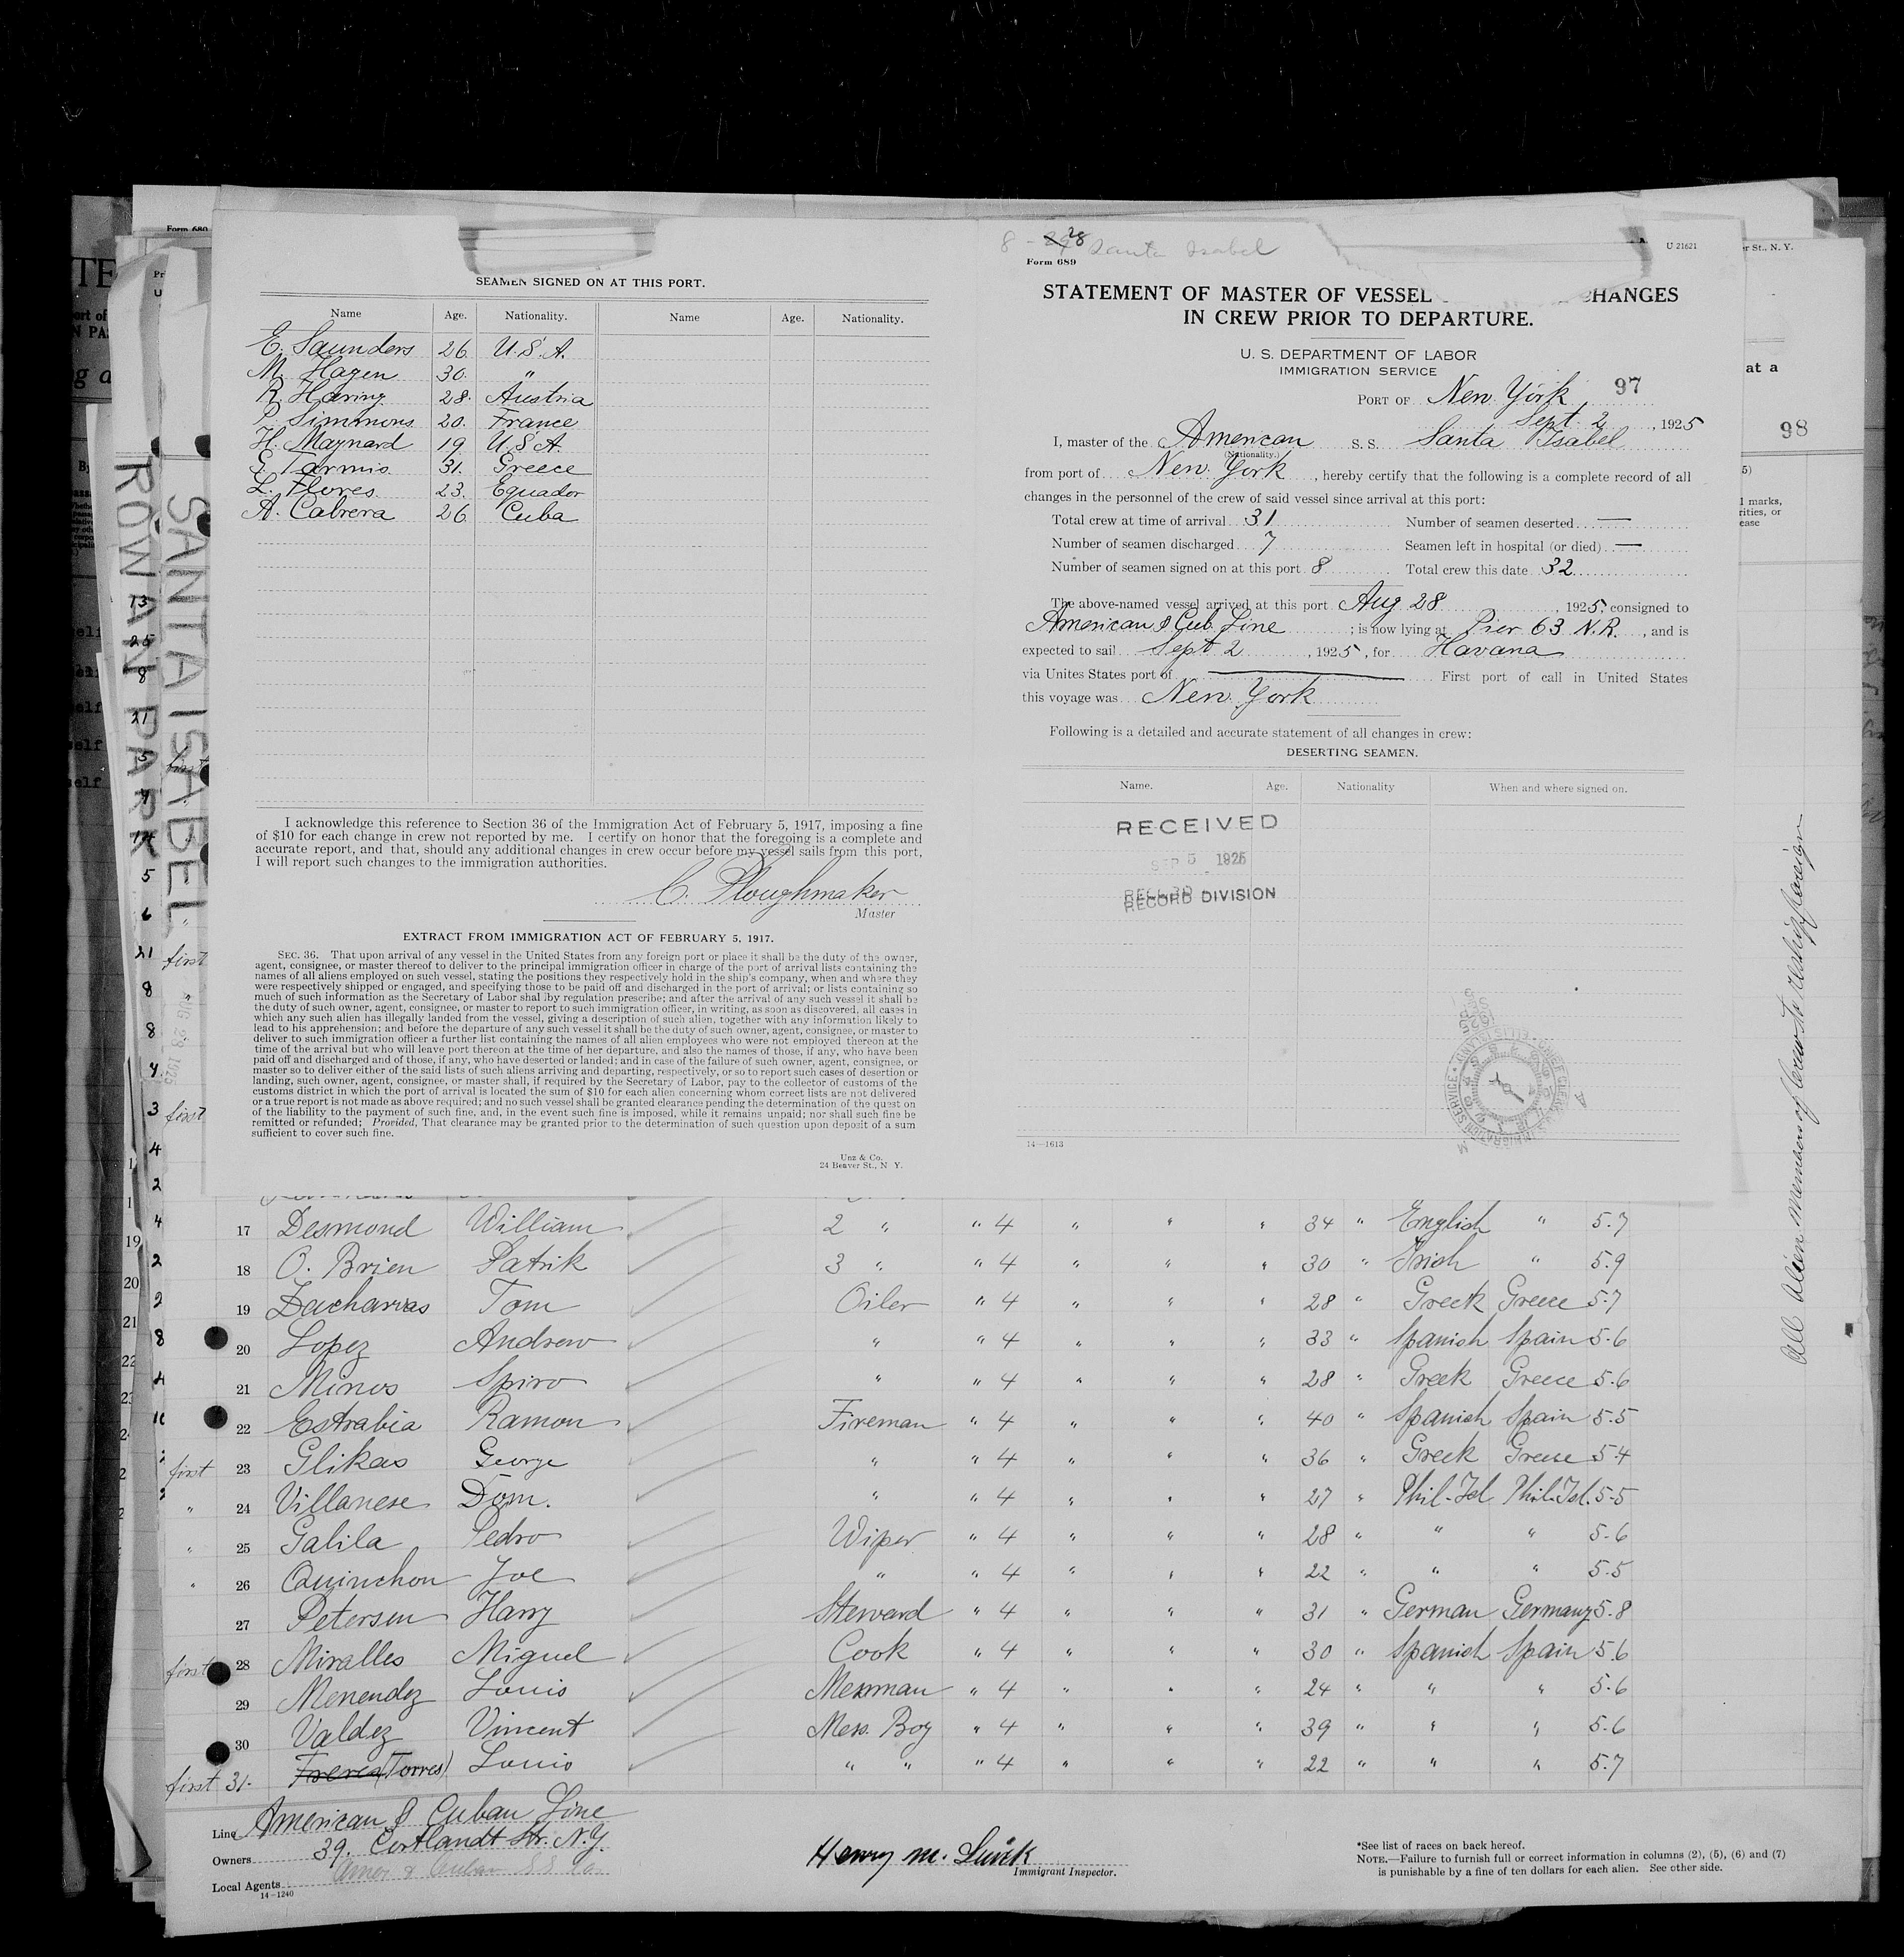 8 - 28 Santa Isabel
Form 689
U 21621
SEAMEN SIGNED ON AT THIS PORT.
Name Age. Nationality. Name Age. Nationality.
E. Saunders 26 U.S.A.
M. Hagen 30 "
R. Haring 28 Austria
P. Simmons 20 France
H. Maynard 19 U.S.A.
G. Tarmis 31 Greece
L. Flores 23 Equador
A. Cabrera 26 Cuba
I acknowledge this reference to Section 36 of the Immigration Act of February 5, 1917, imposing a fine
of $10 for each change in crew not reported by me. I certify on honor that the foregoing is a complete and
accurate report, and that, should any additional changes in crew occur before my vessel sails from this port,
I will report such changes to the immigration authorities.
C. Ploughmaker
Master
EXTRACT FROM IMMIGRATION ACT OF FEBRUARY 5, 1917.
SEC. 36. That upon arrival of any vessel in the United States from any foreign port or place it shall be the duty of the owner,
agent, consignee, or master thereof to deliver to the principal immigration officer in charge of the port of arrival lists containing the
names of all aliens employed on such vessel, stating the positions they respectively hold in the ship's company, when and where they
were respectively shipped or engaged, and specifying those to be paid off and discharged in the port of arrival; or lists containing so
much of such information as the Secretary of Labor shal lby regulation prescribe; and after the arrival of any such vessel it shall be
the duty of such owner, agent, consignee, or master to report to such immigration officer, in writing, as soon as discovered, all cases in
which any such alien has illegally landed from the vessel, giving a description of such alien, together with any information likely to
lead to his apprehension; and before the departure of any such vessel it shall be the duty of such owner, agent, consignee, or master to
deliver to such immigration officer a further list containing the names of all alien employees who were not employed thereon at the
time of the arrival but who will leave port thereon at the time of her departure, and also the names of those, if any, who have been
paid off and discharged and of those, if any, who have deserted or landed; and in case of the failure of such owner, agent, consignee, or
master so to deliver either of the said lists of such aliens arriving and departing, respectively, or so to report such cases of desertion or
landing, such owner, agent, consignee, or master shall, if required by the Secretary of Labor, pay to the collector of customs of the
customs district in which the port of arrival is located the sum of $10 for each alien concerning whom correct lists are not delivered
or a true report is not made as above required; and no such vessel shall be granted clearance pending the determination of the quest on
of the liability to the payment of such fine, and, in the event such fine is imposed, while it remains unpaid; nor shall such fine be
remitted or refunded; Provided, That clearance may be granted prior to the determination of such question upon deposit of a sum
sufficient to cover such fine.
Unz & Co.
24 Beaver St., N Y.
STATEMENT OF MASTER OF VESSEL CHANGES
IN CREW PRIOR TO DEPARTURE.
U. S. DEPARTMENT OF LABOR
IMMIGRATION SERVICE
PORT OF New York 97
Sept 2, 1925
I, master of the American S. S. Santa Isabel
(Nationality.)
from port of New York, hereby certify that the following is a complete record of all
changes in the personnel of the crew of said vessel since arrival at this port:
Total crew at time of arrival 31 Number of seamen deserted —
Number of seamen discharged 7 Seamen left in hospital (or died) —
Number of seamen signed on at this port 8 Total crew this date 32
The above-named vessel arrived at this port Aug 28, 1925, consigned to
American & Cub. Line; is now lying at Pier 63 N.R., and is
expected to sail Sept 2, 1925, for Havana
via Unites States port of — First port of call in United States
this voyage was New York
Following is a detailed and accurate statement of all changes in crew:
DESERTING SEAMEN.
Name. Age. Nationality When and where signed on.
RECEIVED
SEP 5 1925
RECORD DIVISION
14—1613
98
SANTA ISABEL
ROWAN PARK
AUG 28 1925
All Alien members of crew to reship foreign
17 Desmond William 2 " " 4 " " " 34 " English " 5.7
18 O. Brien Patrik 3 " " 4 " " " 30 " Irish " 5.9
19 Zacharias Tom Oiler " 4 " " " 28 " Greek Greece 5.7
20 Lopez Andrew " " 4 " " " 33 " Spanish Spain 5.6
21 Minos Spiro " " 4 " " " 28 " Greek Greece 5.6
22 Estrabia Ramon Fireman " 4 " " " 40 " Spanish Spain 5.5
first 23 Glikas George " " 4 " " " 36 " Greek Greece 5.4
" 24 Villanese Dom. " " 4 " " " 27 " Phil. Isl Phil. Isl. 5.5
" 25 Galila Pedro Wiper " 4 " " " 28 " " " 5.6
" 26 Quinchon Joe " " 4 " " " 22 " " " 5.5
27 Petersen Harry Steward " 4 " " " 31 " German Germany 5.8
first 28 Miralles Miguel Cook " 4 " " " 30 " Spanish Spain 5.6
29 Menendez Louis Messman " 4 " " " 24 " " " 5.6
30 Valdez Vincent Mess. Boy " 4 " " " 39 " " " 5.6
first 31. (Torres) Louis " " " 4 " " " 22 " " " 5.7
Line American & Cuban Line
39. Cortlandt Str. N.Y.
Owners Amer & Cuban S S Co
Local Agents
14-1240
Henry M.
Immigrant Inspector.
*See list of races on back hereof.
NOTE.—Failure to furnish full or correct information in columns (2), (5), (6) and (7)
is punishable by a fine of ten dollars for each alien. See other side.